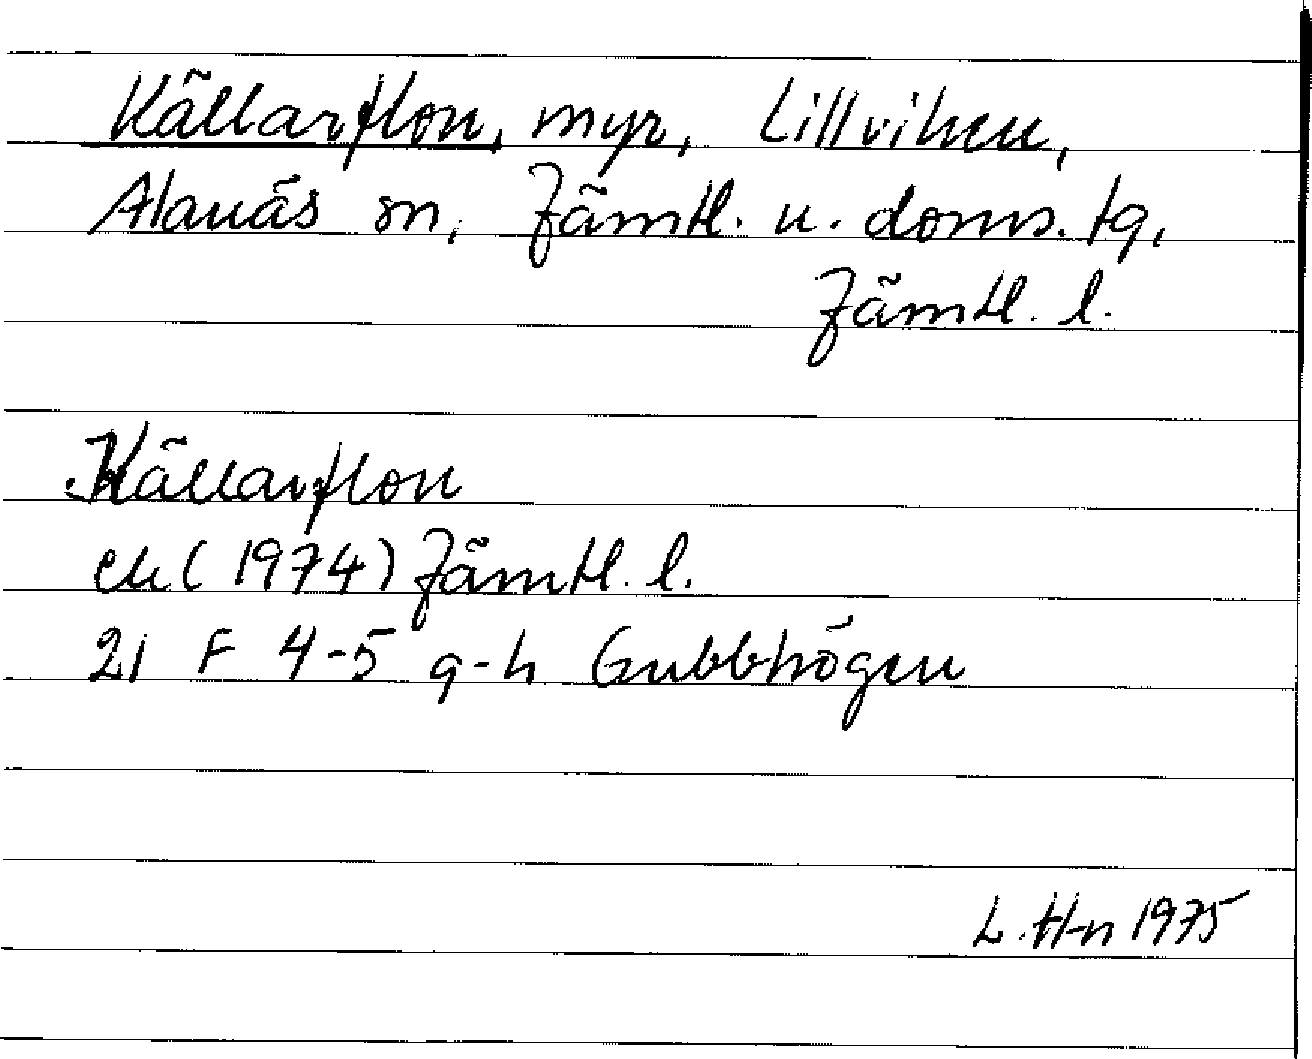 Källarflon, myr, Lillviken,
Alanäs sn, Jämtl. n. doms. tg,
Jämtl. l.
Källarflon
ek (1974) Jämtl. l.
21 F 4-5 g-h Gubbhögen
L. H-n 1975